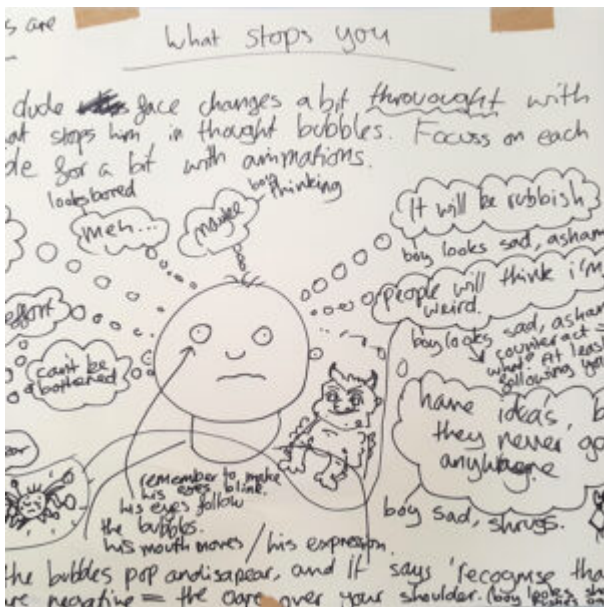 s are
What stops you
dude face changes a bit throuought with
at stops him in thought bubbles. Focuss on each
de for a bit with animations.
looks bored
meh...
boy thinking
maybe
It will be rubbish
boy looks sad, asham
people will think i'm
weird.
boy looks sad, asham
counteract
what? At leas
following yo
effort
can't be
bothered
have ideas, b
they never go
anywhere
boy sad, shrugs.
remember to make
his eyes blink.
his eyes follow
the bubbles.
his mouth moves / his expression.
the bubbles pop and isapear, and it says 'recognise tha
re negative = the over your shoulder. (boy looks